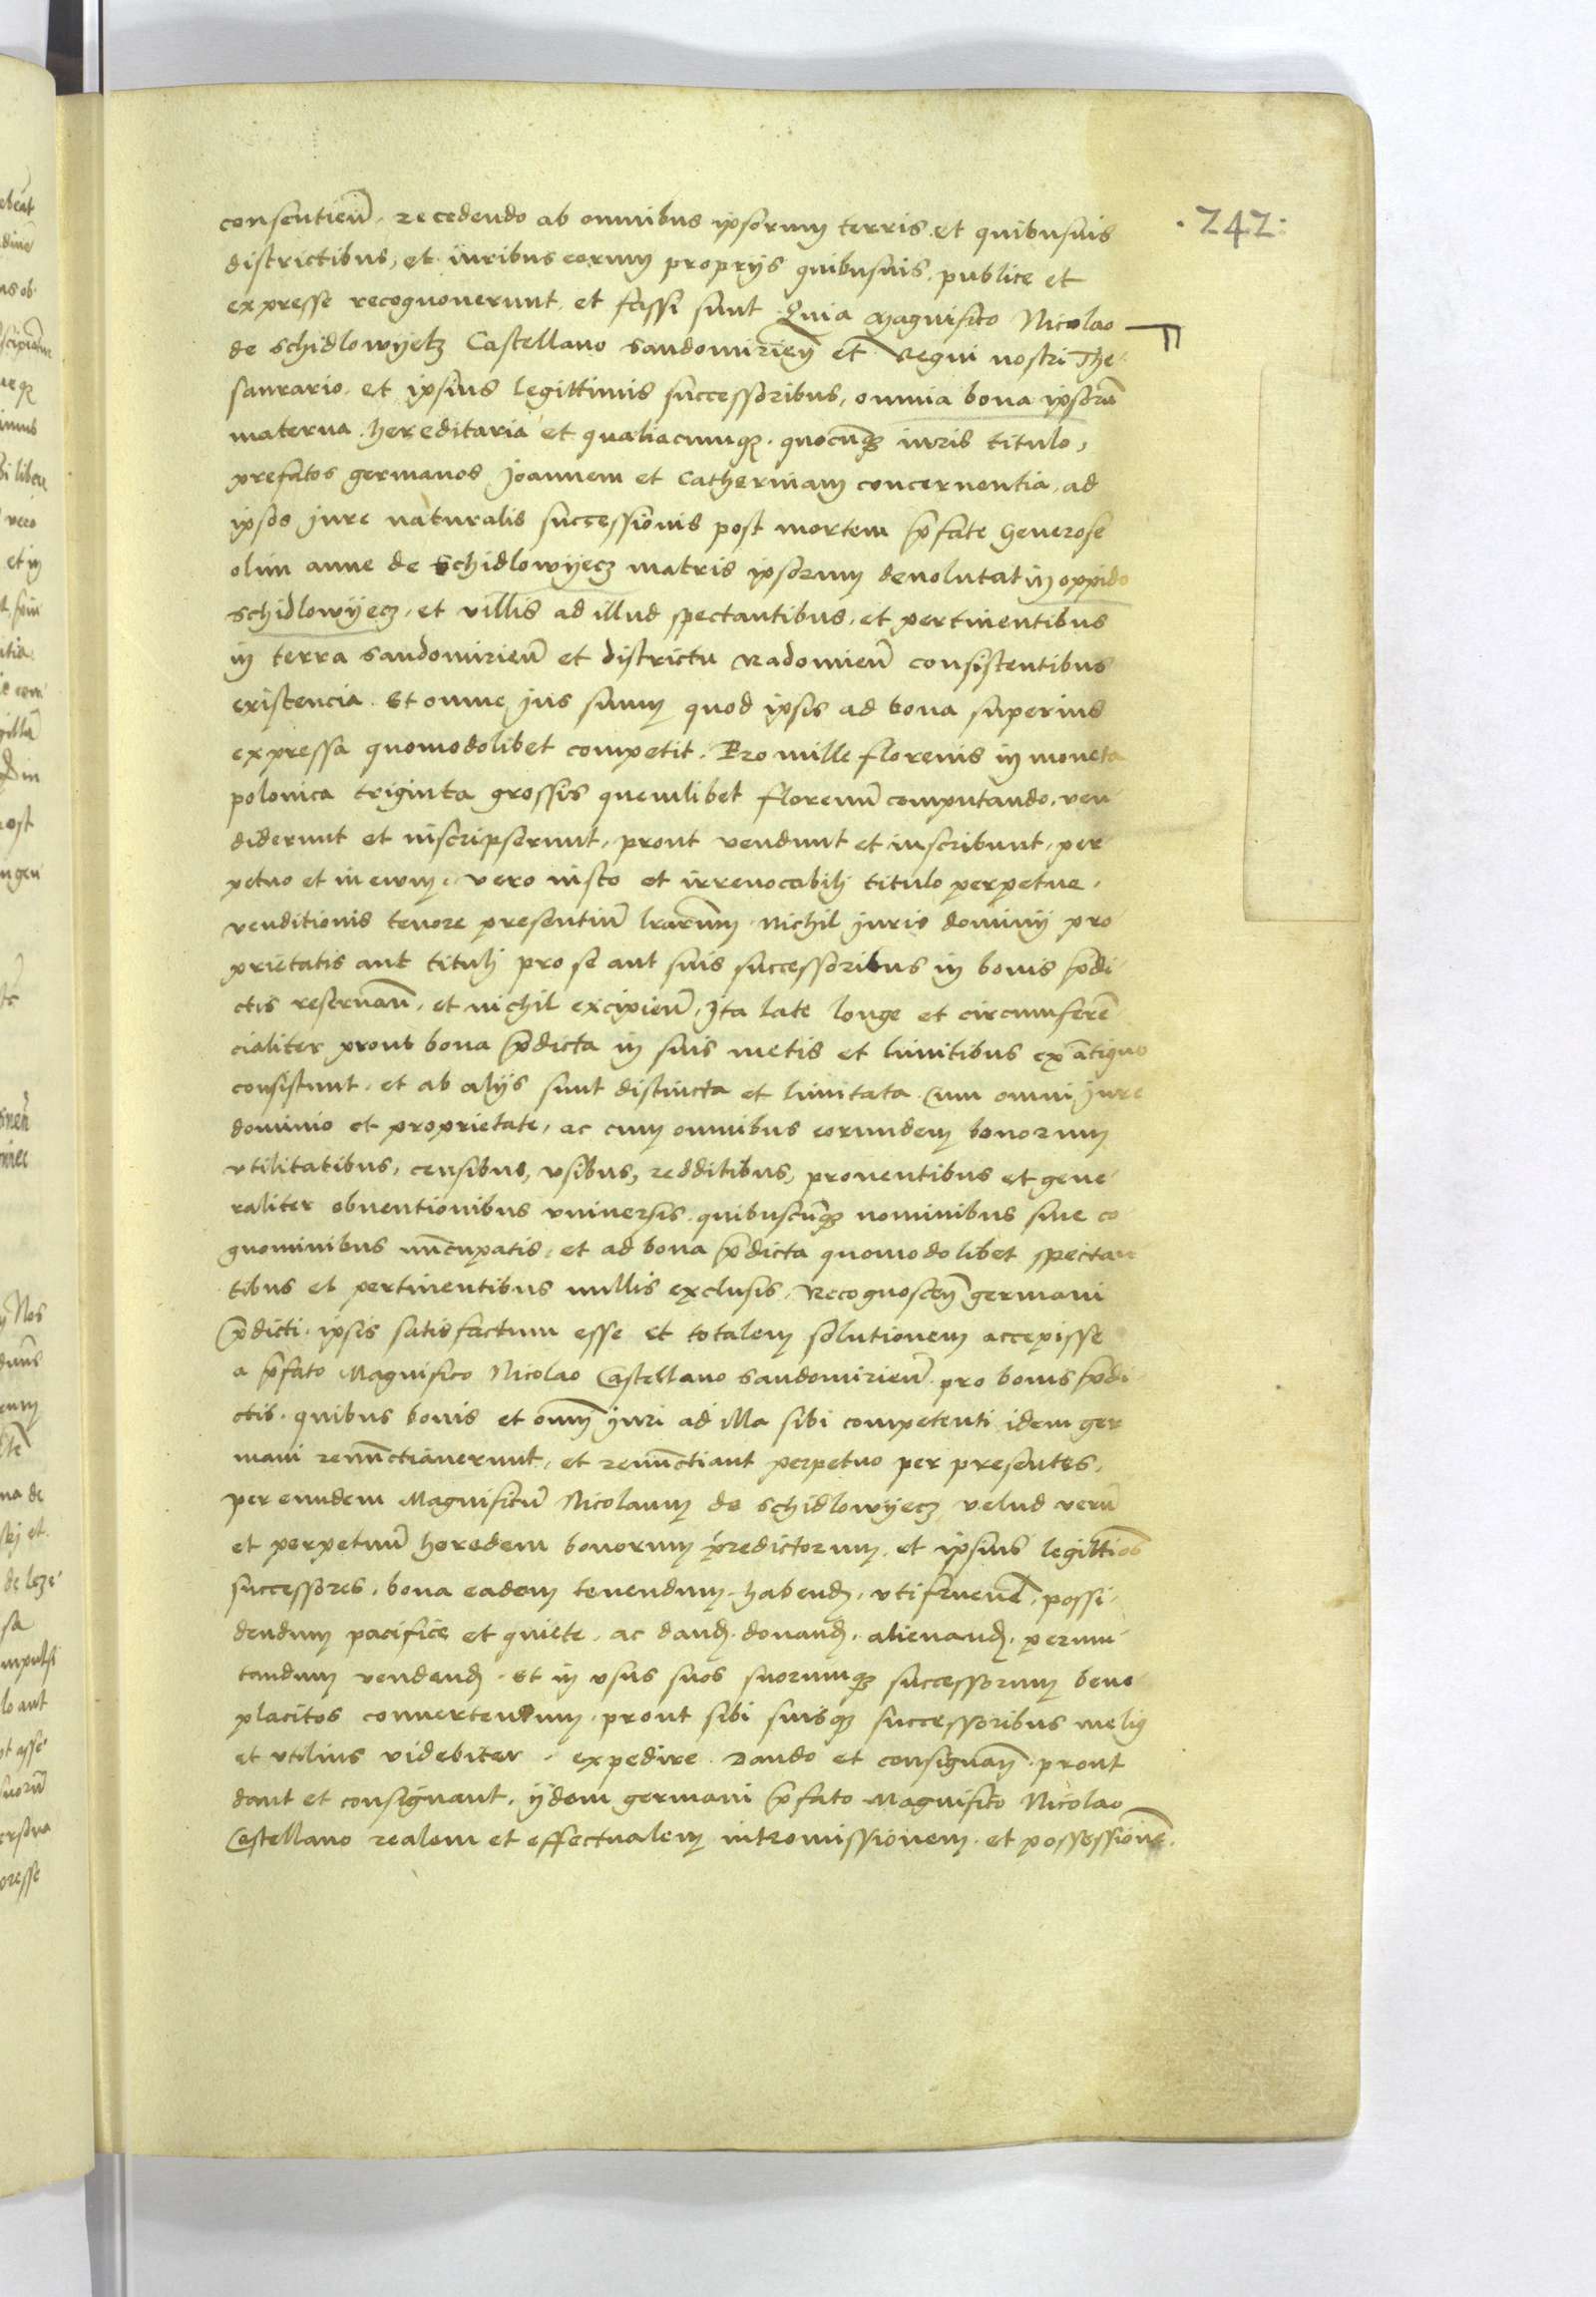 .242:
consentien̄. recedendo ab omnibus ipsorum terris. et quibusuis
districtibus, et iuribus eorum proprijs quibusuis. publice et
expresse recognouerunt. et fassi sunt. Quia Magnifico Nicolao
de Schidlowyetz Castellano Sandomirien̄ et Regni nostri The-
saurario. et ipsius legittimis successoribus, omnia bona ipsorū
materna. hereditaria et qualiacumqꝫ. quocūqꝫ iuris titulo,
prefatos germanos Joannem et Catherinam concernentia, ad
ipsos jure naturalis successionis post mortem p̄fate Generose
olim anne de Schidlowyecz matris ipsorum deuoluta in oppido
Schidlowyecz, et villis ad illud spectantibus. et pertinentibus
in terra Sandomirien̄ et districtu Radomien̄ consistentibus
existencia. Et omne jus suum quod ipsis ad bona superius
expressa quomodolibet competit. Pro mille florenis in moneta
polonica triginta grossis quemlibet florenū computando, ven-
diderunt et inscripserunt, prout vendunt et inscribunt, per-
petuo et in ewum, vero iusto et irreuocabilj titulo perpetue.
venditionis tenore presentiū lr̄arum. Nichil juris dominij pro-
prietatis aut titulj pro se aut suis successoribus in bonis p̄di-
ctis reseruan̄. et nichil excipien̄. Ita late longe et circumferē-
cialiter prout bona p̄dicta in suis metis et limitibus ex ātiquo
consistunt. et ab alijs sunt distincta et limitata. Cum omni jure
dominio et proprietate, ac cum omnibus eorundem bonorum
vtilitatibus, censibus, vsibus, redditibus, prouentibus et gene-
raliter obuentionibus vniuersis. quibuscūqꝫ nominibus siue co-
gnominibus nūcupatis, et ad bona p̄dicta quomodolibet spectan
tibus et pertinentibus nullis exclusis. Recognoscen̄ germani
p̄dicti. ipsis satisfactum esse et totalem solutionem accepisse
a p̄fato Magnifico Nicolao Castellano Sandomirien̄ pro bonis p̄di-
ctis. quibus bonis et omni juri ad illa sibi competenti idem ger
mani renūctiauerunt, et renūctiant perpetuo per presentes,
per eundem Magnificū Nicolaum de Schidlowyecz velud verū
et perpetuū heredem bonorum predictorum, et ipsius legittīos
successores. bona eadem tenendum. habend̄. vtifruend̄. possi-
dendum pacifice et quiete. ac dand̄. donand̄. alienand̄. permu-
tandum vendend̄. et in vsus suos suorumqꝫ successorum bene-
placitos conuertendum. prout sibi suisqꝫ successoribus meliꝰ
et vtilius videbitur. expedire. Dando et consignan̄. prout
dant et consignant. ijdem germani p̄fato Magnifico Nicolao
Castellano realem et effectualem intromissionem. et possessionē.